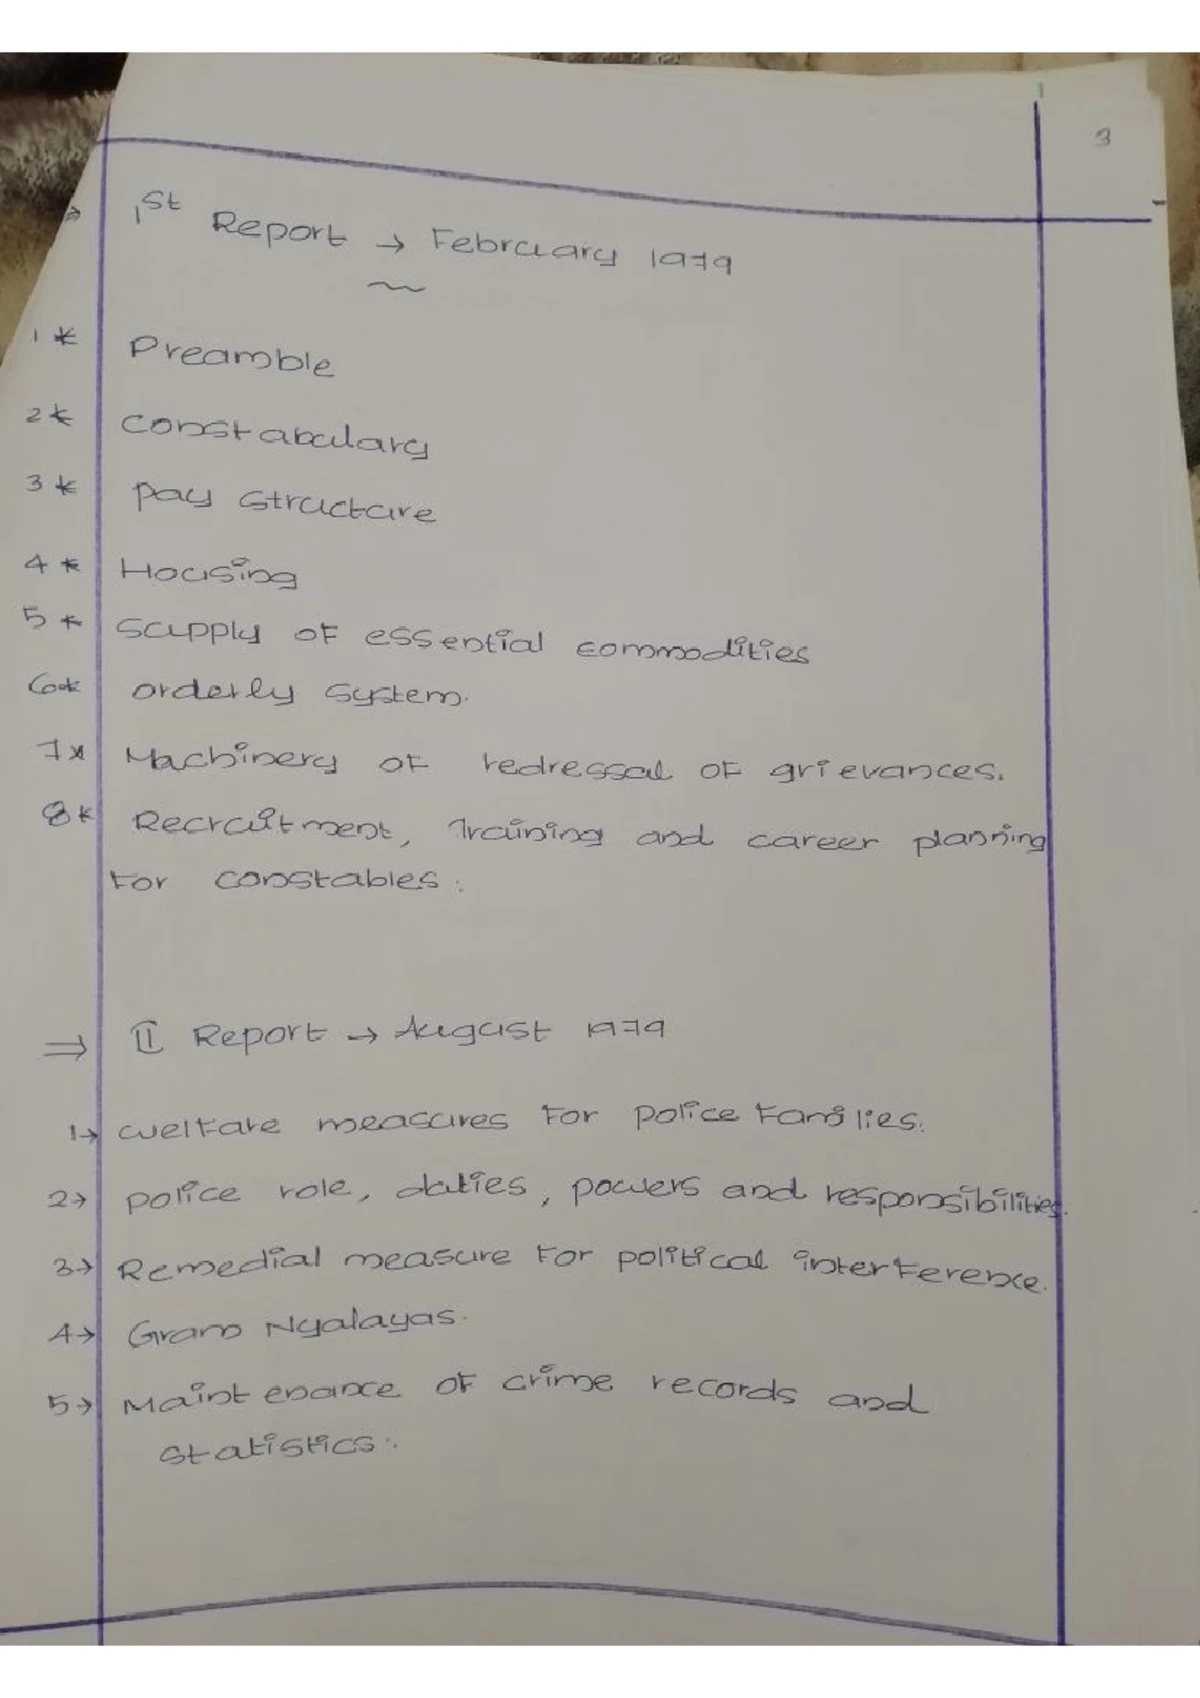 3
⇒ 1st Report → February 1979
1* Preamble
2* Constabulary
3* Pay Structure
4* Housing
5* Supply of essential commodities
6* orderly System.
7* Machinery of redressal of grievances.
8* Recruitment, Training and career planning
for constables.
⇒ II Report → August 1979
1→ welfare measures for police families.
2→ police role, duties, powers and responsibilities.
3→ Remedial measure for political interference.
4→ Gram Nyalayas.
5→ Maintenance of crime records and
statistics.